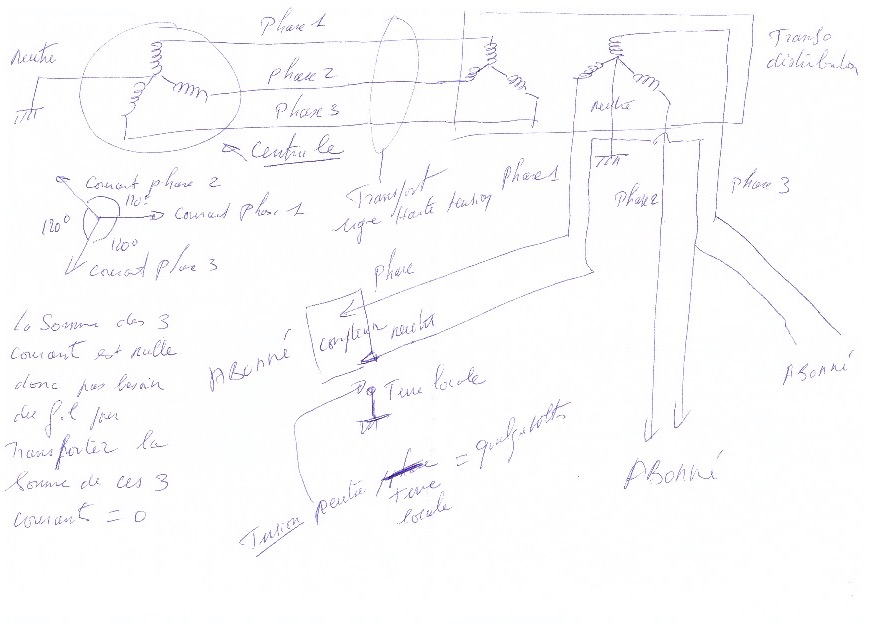 Phase 1
Neutre
Phase 2
Phase 3
Centrale
Transfo
distribution
neutre
Courant phase 2
120°
Courant Phase 1
120°
120°
Courant phase 3
Transport
ligne Haute tension
Phase 1
Phase 2
Phase 3
Phase
neutre
compteur
ABONNÉ
Terre locale
ABONNÉ
ABONNÉ
La Somme des 3
courant est nulle
donc pas besoin
du fil pour
Transporter la
Somme de ces 3
courants = 0
Tension neutre
terre
locale
= quelques volts